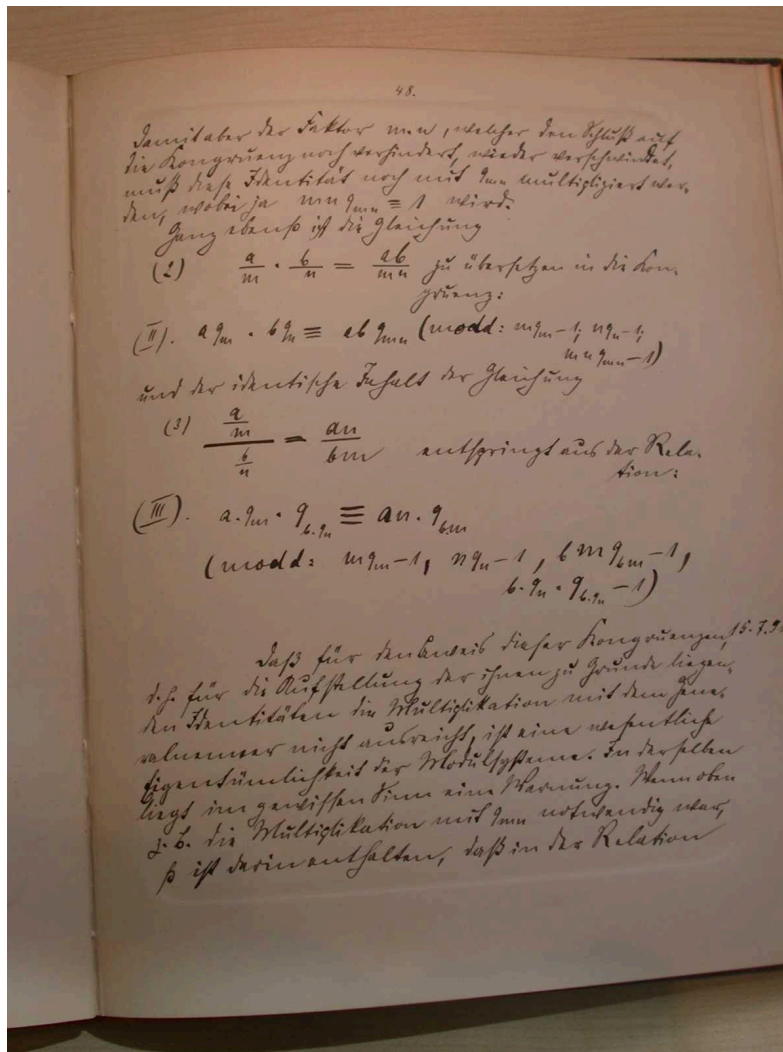 48.
Damit aber der Faktor mn, welcher den Schluß auf
die Kongruenz noch verhindert, wieder verschwindet,
muß diese Identität noch mit g_mn multipliziert wer-
den, wobei ja mn g_mn ≡ 1 wird.
Ganz ebenso ist die Gleichung
(2) a/m · b/n = ab/mn zu übersetzen in die Kon-
gruenz:
(II). a g_m · b g_n ≡ ab g_mn (modd: m g_m − 1; n g_n − 1;
mn g_mn − 1)
und der identische Inhalt der Gleichung
(3) (a/m)/(b/n) = an/bm entspringt aus der Rela-
tion:
(III). a · g_m · g_b·g_n ≡ an · g_bm
(modd: m g_m − 1, n g_n − 1, bm g_bm − 1,
b · g_n · g_b·g_n − 1)
Daß für den Beweis dieser Kongruenzen, 15.7.9
d.h. für die Aufstellung der ihnen zu Grunde liegen-
den Identitäten die Multiplikation mit dem Gene-
ralnenner nicht ausreicht, ist eine wesentliche
Eigentümlichkeit der Modulsysteme. In derselben
liegt im gewissen Sinn eine Warnung. Wenn oben
z. B. die Multiplikation mit g_mn notwendig war,
so ist darin enthalten, daß in der Relation